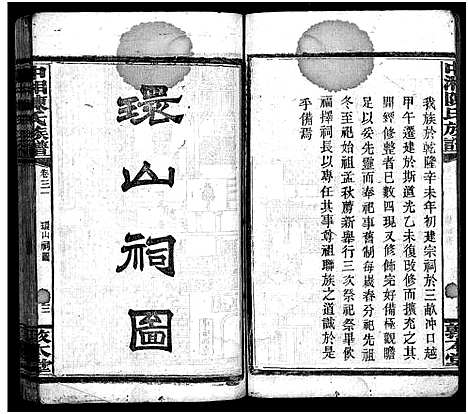 中湘陳氏族譜
我族於乾隆辛未年初建宗祠於三畝冲口越
甲午遷建於斯道光乙未復改修而擴充之大
開經修者已數四現又修飾完好備極觀瞻
足以妥先靈而奉祀事舊制每歲春分祀先祖
冬至祀始祖孟秋薦新舉行三次祭祀祭畢飲
福擇祠長以專任其事尊祖聯族之道識於是
乎備焉
環山祠圖
中湘陳氏族譜
卷三
環山祠圖